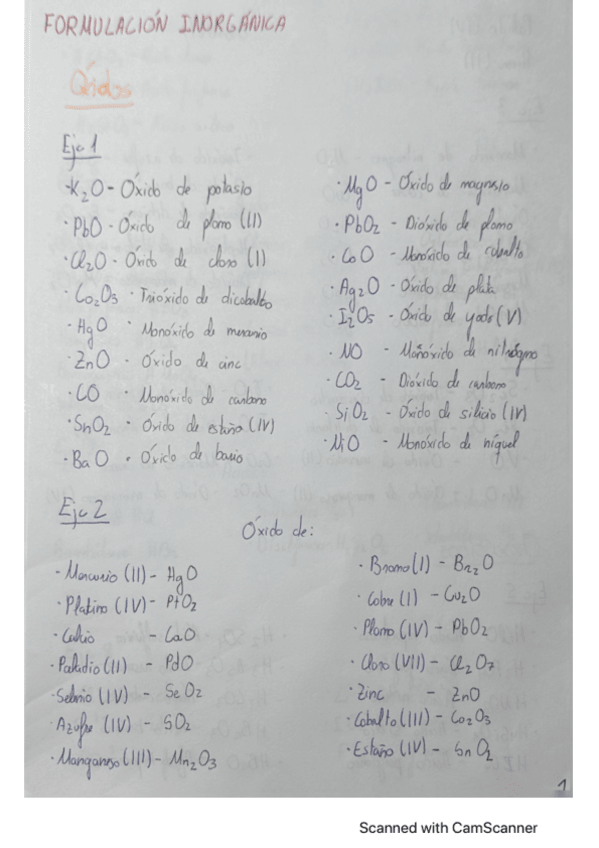 FORMULACIÓN INORGÁNICA
Óxidos
Ejc 1
· K₂O - Óxido de potasio
· PbO - Óxido de plomo (II)
· Cl₂O - Óxido de cloro (I)
· Co₂O₃ · Trióxido de dicobalto
· HgO · Monóxido de mercurio
· ZnO · Óxido de cinc
· CO · Monóxido de carbono
· SnO₂ · Óxido de estaño (IV)
· BaO · Óxido de bario
· MgO - Óxido de magnesio
· PbO₂ - Dióxido de plomo
· CoO - Monóxido de cobalto
· Ag₂O - Óxido de plata
· I₂O₅ - Óxido de yodo (V)
· NO - Monóxido de nitrógeno
· CO₂ - Dióxido de carbono
· SiO₂ - Óxido de silicio (IV)
· NiO - Monóxido de níquel
Ejc 2
Óxido de:
· Mercurio (II) - HgO
· Platino (IV) - PtO₂
· Calcio - CaO
· Paladio (II) - PdO
· Selenio (IV) - SeO₂
· Azufre (IV) - SO₂
· Manganeso (III) - Mn₂O₃
· Bromo (I) - Br₂O
· Cobre (I) - Cu₂O
· Plomo (IV) - PbO₂
· Cloro (VII) - Cl₂O₇
· Zinc - ZnO
· Cobalto (III) - Co₂O₃
· Estaño (IV) - SnO₂
1
Scanned with CamScanner